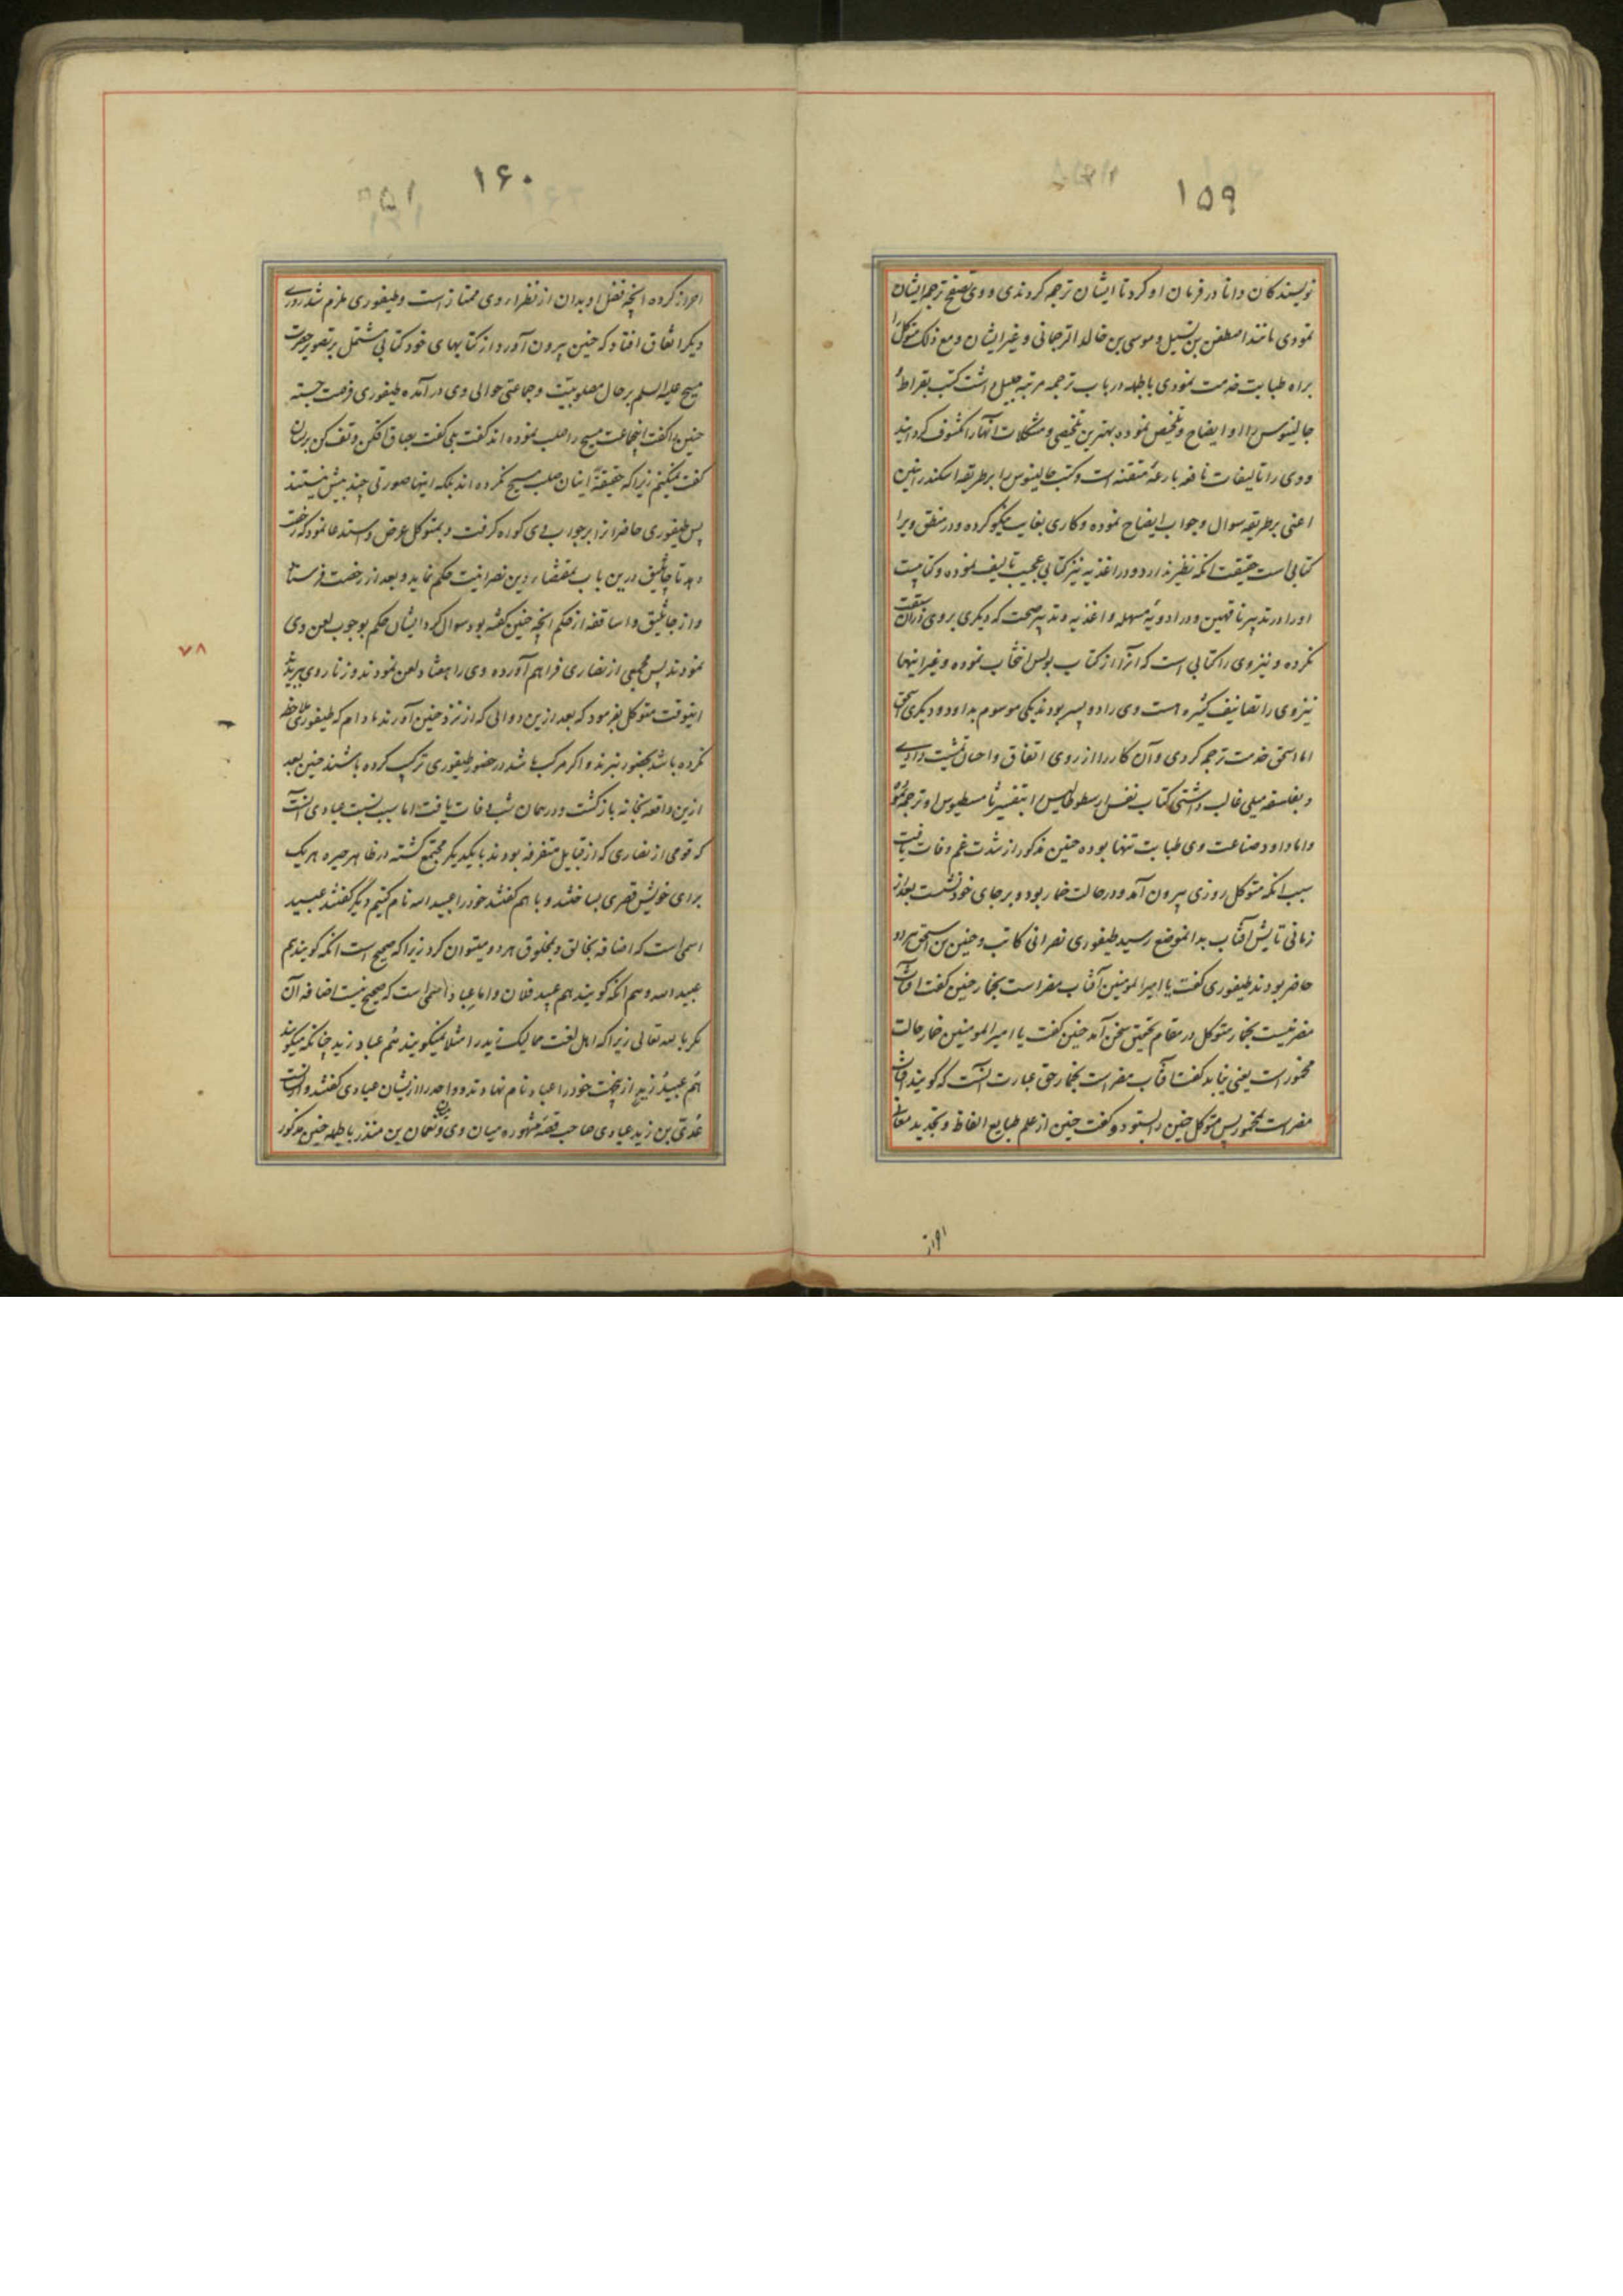 ۱۵۹
نویسندگان دانا در فرمان او کرد تا ایشان ترجمه کردندی و وی تصفح ترجمه ایشان
نمودی مانند اصطفن بن بسیل و موسی بن خالد الترجمانی و غیر ایشان و مع ذلک متوکل را
براه طبابت خدمت نمودی بالجمله در باب ترجمه مرتبه جلیل داشت کتب بقراط و
جالینوس را او ایضاح و تلخیص نموده بهترین تلخیصی و مشکلات آنها را مکشوف گردانید
و وی را تالیفات نافعه بارعه متقنه است و کتب جالینوس را بر طریقه اسکندرانیین
اعنی بر طریقه سوال و جواب ایضاح نموده و کاری بغایت نیکو کرده و در منطق ویرا
کتابی است حقیقت آنکه نظیر ندارد و در اغذیه نیز کتابی عجیب تالیف نموده و کتابیست
او را در تدبیر ناقهین و در ادویه مسهله و اغذیه و تدبیر صحت که دیگری بر وی در آن سبقت
نکرده و نیز وی را کتابی است که آنرا از کتاب بولس انتخاب نموده و غیر اینها
نیز وی را تصانیف کثیره هست وی را دو پسر بودند یکی موسوم بداود و دیگری اسحق
اما اسحق خدمت ترجمه کردی و آن کار را از روی اتفاق و احسان تمشیت دادی
و بفلسفه میلی غالب داشتی کتاب نفس ارسطوطالیس را بتفسیر ثامسطیوس او ترجمه نمود
و اما داود صناعت وی طبابت تنها بوده حنین مذکور از شدت غم وفات یافت
سبب آنکه متوکل روزی بیرون آمد و در حالت خمار بود و بر جای خود نشست بعد از
زمانی تابش آفتاب بدانموضع رسید طیفوری نصرانی کاتب و حنین بن اسحق هر دو
حاضر بودند طیفوری گفت یا امیرالمومنین آفتاب مضر است بخمار حنین گفت آفتاب
مضر نیست بخمار متوکل در مقام تحقیق سخن آمد حنین گفت یا امیرالمومنین خمار حالت
مخمور است یعنی نباید گفت آفتاب مضر است بخمار حق عبارت آنست که گویند آفتاب
مضر است بمخمور پس متوکل حنین را بستود و گفت حنین از علم طبایع الفاظ و تجدید معانی
احراز
۱۶۰
احراز کرده آنچه فضل او بدان از نظرا روی ممتاز است و طیفوری ملزم شد روزی
دیگر اتفاق افتاد که حنین بیرون آورد از کتابهای خود کتابی مشتمل بر تصویر حضرت
مسیح علیه السلم بر حال مصلوبیت و جماعتی حوالی وی در آمده طیفوری فرصت جسته
حنین را گفت اینجماعت مسیح را صلب نموده اند گفت بلی گفت بصاق افکن و تف کن بریشان
گفت نمیکنم زیرا که حقیقةً اینان صلب مسیح نکرده اند بلکه اینها صورتی چند بیش نیستند
پس طیفوری حاضرانرا بر جواب وی گواه گرفت و بمتوکل عرض و استدعا نمود که رخصت
دهد تا جاثلیق درین باب بمقتضاء دین نصرانیت حکم نماید و بعد از رخصت فرستاد
و از جاثلیق و اساقفه از حکم آنچه حنین گفته بود سوال کرد ایشان حکم بوجوب لعن وی
نمودند پس جمعی از نصاری فراهم آورده وی را هفتاد لعن نمودند و زنار وی ببریدند
اینوقت متوکل بفرمود که بعد ازین دوائی که از نزد حنین آورند مادام که طیفوری ملاحظه
نکرده باشد بحضور نبرند و اگر مرکب باشد در حضور طیفوری ترکیب کرده باشند حنین بعد
ازین واقعه بخانه بازگشت و در همان شب وفات یافت اما سبب نسبت عبادی آنست
که قومی از نصاری که از قبایل متفرقه بودند با یکدیگر مجتمع گشته در ظاهر حیره هر یک
برای خویش قصری بساختند و با هم گفتند خود را عبید الله نام کنیم دیگر گفتند عبید
اسمی است که اضافه بخالق و بمخلوق هر دو میتوان کرد زیرا که صحیح است آنکه گویند هم
عبید الله و هم آنکه گویند هم عبید فلان و اما عباد اسمی است که صحیح نیست اضافه آن
مگر با الله تعالی زیرا که اهل لغت ممالیک زید را مثلا نمیگویند هُم عباد زید چنانکه میگویند
هُم عبیدُ زیدٍ ازینجهت خود را عباد نام نهادند و واحد را از ایشان عبادی گفتند و از آنست
عَدِیّ بن زید عبادی صاحب قصهٔ مشهوره میان وی و میان نعمان بن منذر بالجمله حنین مذکور
۷۸